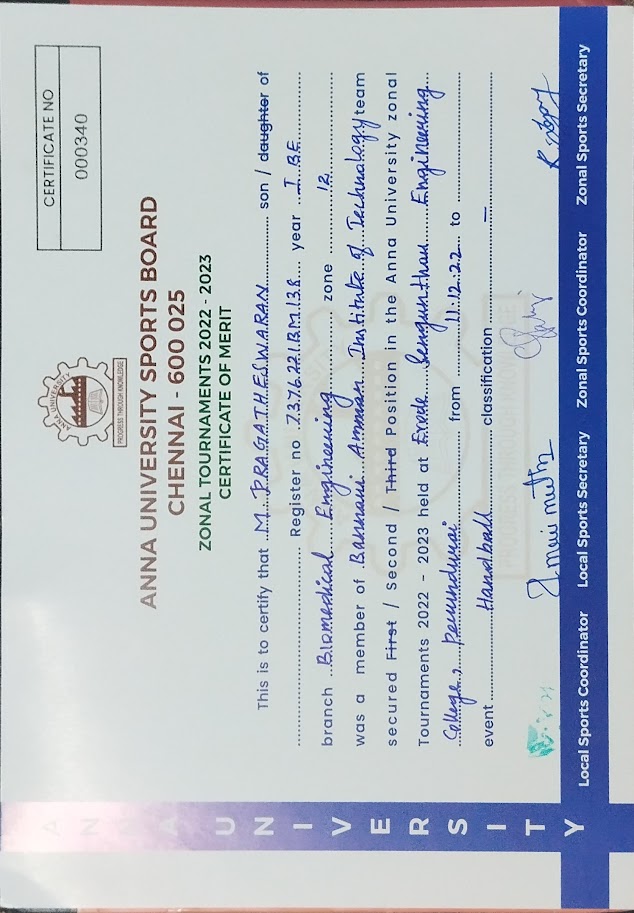 ANNA UNIVERSITY
CERTIFICATE NO
000340
ANNA UNIVERSITY
PROGRESS THROUGH KNOWLEDGE
ANNA UNIVERSITY SPORTS BOARD
CHENNAI - 600 025
ZONAL TOURNAMENTS 2022 - 2023
CERTIFICATE OF MERIT
This is to certify that M. PRAGATHESWARAN son / daughter of
Register no 7376221BM138 year I BE
branch Biomedical Engineering zone 12
was a member of Bannari Amman Institute of Technology team
secured First / Second / Third Position in the Anna University zonal
Tournaments 2022 - 2023 held at Erode Sengunthar Engineering
College, Perundurai from 11.12.22 to
event Handball classification —
PROGRESS THROUGH KNOWLEDGE
Local Sports Coordinator Local Sports Secretary Zonal Sports Coordinator Zonal Sports Secretary